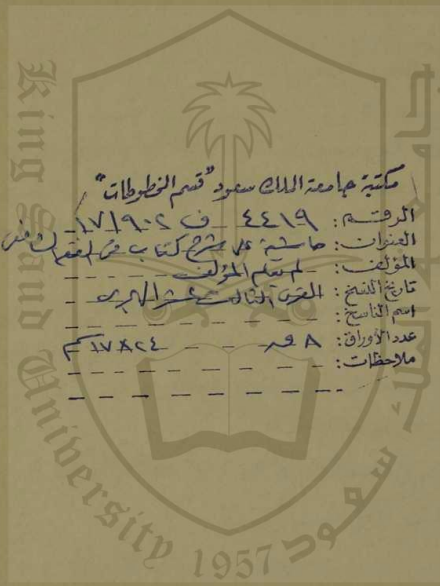 مكتبة جامعة الملك سعود "قسم المخطوطات"
الرقم: ٤٤١٩ ف ١٧١٩٠٢
العنوان: حاشية على شرح كتاب في الفقه الشافعي
المؤلف: لم يعلم المؤلف
تاريخ النسخ: القرن الثالث عشر الهجري
اسم الناسخ:
عدد الأوراق: ٨ ور ١٧٨٢٤ سم
ملاحظات:
King Saud University
1957
سعود